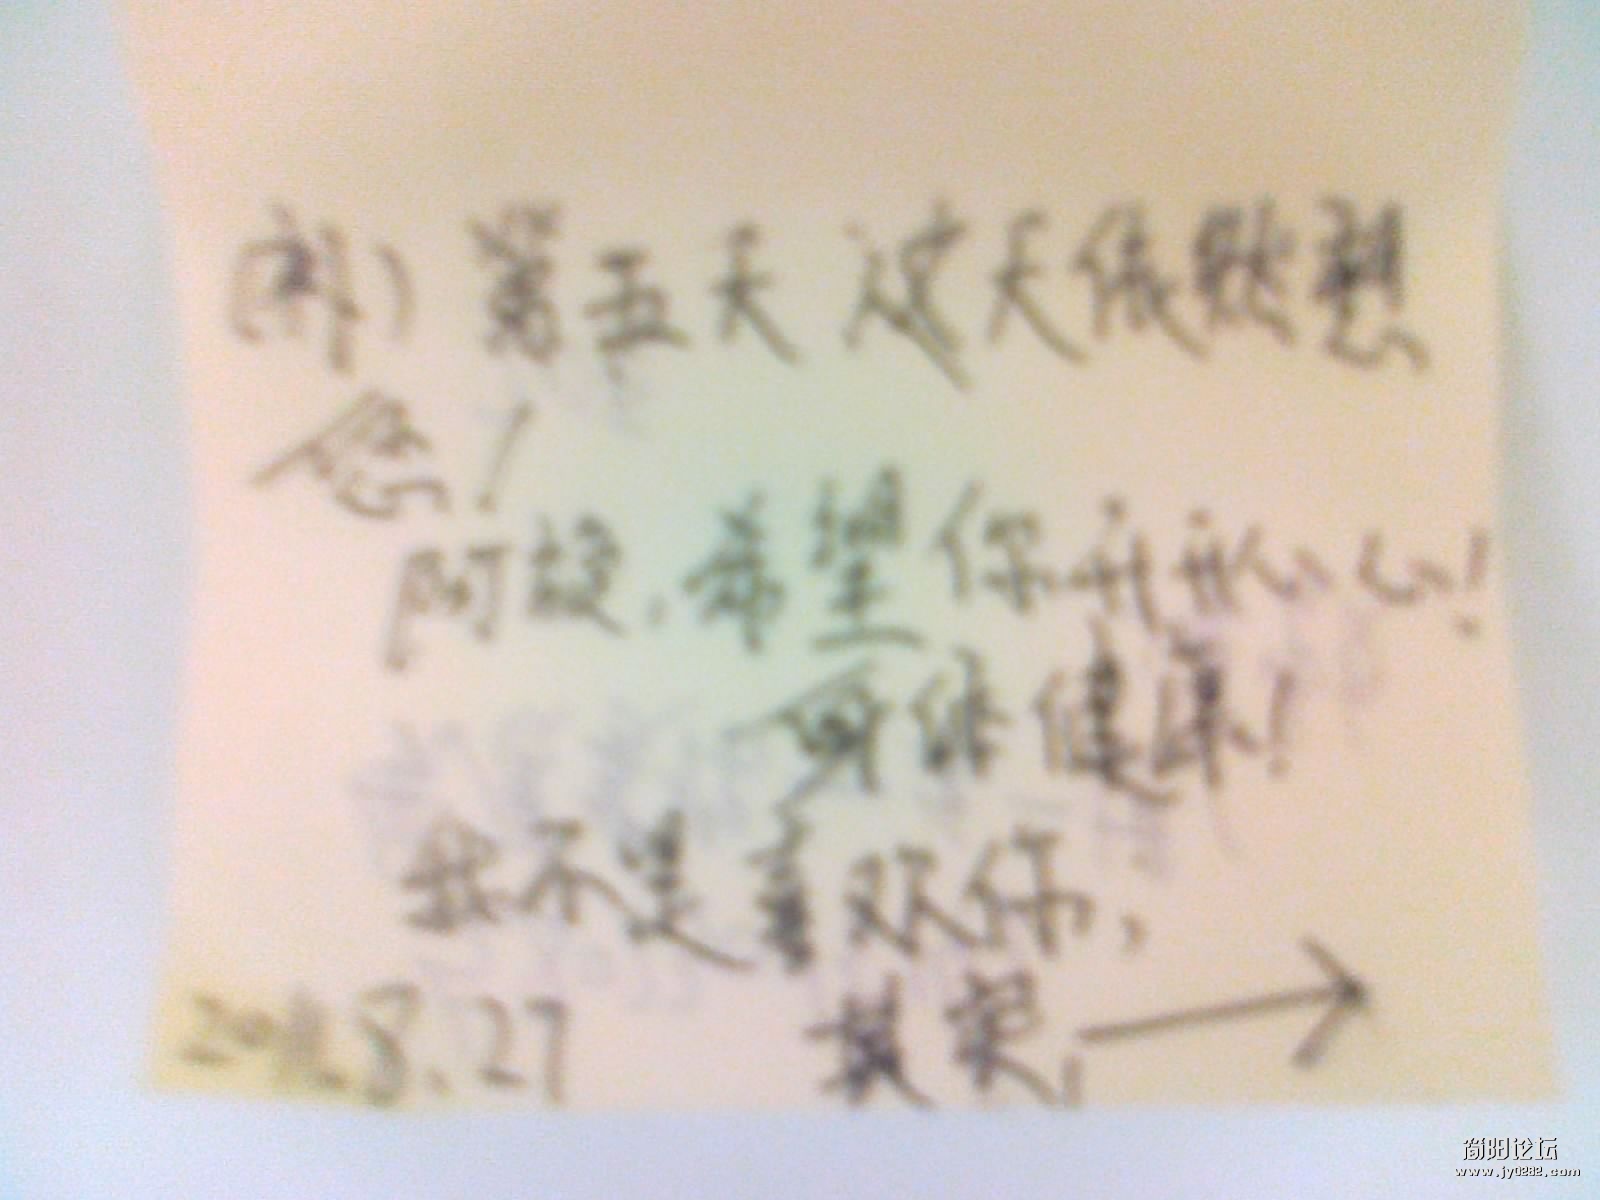 (补)第五天 这天依然想
您!
阿旋,希望你开开心心!
身体健康!
我不是喜欢你,
其实
8.27
简阳论坛
www.jy0282.com